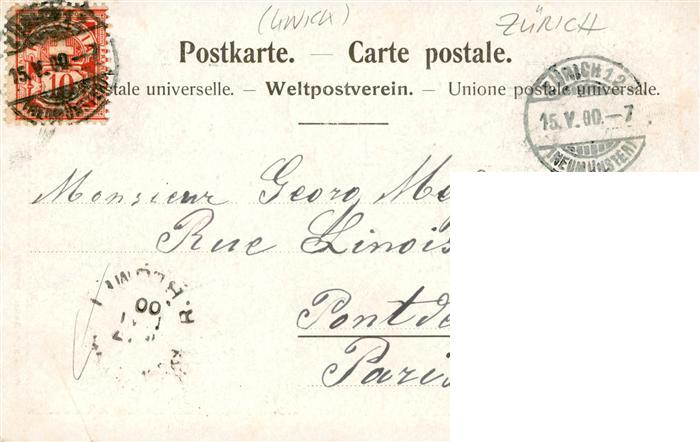 ZÜRICH
Postkarte. — Carte postale.
postale universelle. — Weltpostverein. — Unione postale universale.
15.V.00
10
ZÜRICH 12
15.V.00.-7
(NEUMÜNSTER)
Monsieur Georg
Rue Linois
Pont de
Paris
00